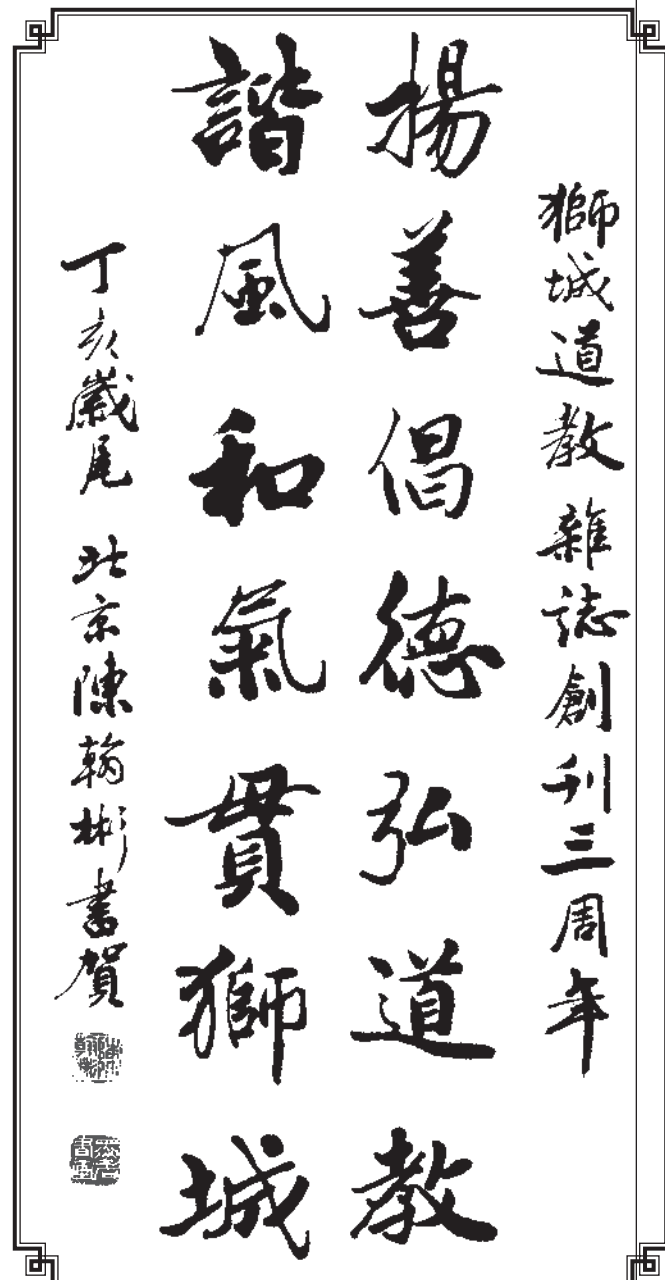 獅城道教雜誌創刊三周年
揚善倡德弘道教
諧風和氣貫獅城
丁亥歲尾 北京陳翰彬書賀